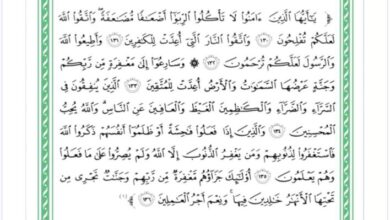 ﴿ يَـٰٓأَيُّهَا ٱلَّذِينَ ءَامَنُوا۟ لَا تَأْكُلُوا۟ ٱلرِّبَوٰٓا۟ أَضْعَـٰفًا مُّضَـٰعَفَةً ۖ وَٱتَّقُوا۟ ٱللَّهَ
لَعَلَّكُمْ تُفْلِحُونَ ١٣٠ وَٱتَّقُوا۟ ٱلنَّارَ ٱلَّتِىٓ أُعِدَّتْ لِلْكَـٰفِرِينَ ١٣١ وَأَطِيعُوا۟ ٱللَّهَ
وَٱلرَّسُولَ لَعَلَّكُمْ تُرْحَمُونَ ١٣٢ ۞ وَسَارِعُوٓا۟ إِلَىٰ مَغْفِرَةٍ مِّن رَّبِّكُمْ
وَجَنَّةٍ عَرْضُهَا ٱلسَّمَـٰوَٰتُ وَٱلْأَرْضُ أُعِدَّتْ لِلْمُتَّقِينَ ١٣٣ ٱلَّذِينَ يُنفِقُونَ فِى
ٱلسَّرَّآءِ وَٱلضَّرَّآءِ وَٱلْكَـٰظِمِينَ ٱلْغَيْظَ وَٱلْعَافِينَ عَنِ ٱلنَّاسِ ۗ وَٱللَّهُ يُحِبُّ
ٱلْمُحْسِنِينَ ١٣٤ وَٱلَّذِينَ إِذَا فَعَلُوا۟ فَـٰحِشَةً أَوْ ظَلَمُوٓا۟ أَنفُسَهُمْ ذَكَرُوا۟ ٱللَّهَ
فَٱسْتَغْفَرُوا۟ لِذُنُوبِهِمْ وَمَن يَغْفِرُ ٱلذُّنُوبَ إِلَّا ٱللَّهُ وَلَمْ يُصِرُّوا۟ عَلَىٰ مَا فَعَلُوا۟
وَهُمْ يَعْلَمُونَ ١٣٥ أُو۟لَـٰٓئِكَ جَزَآؤُهُم مَّغْفِرَةٌ مِّن رَّبِّهِمْ وَجَنَّـٰتٌ تَجْرِى مِن
تَحْتِهَا ٱلْأَنْهَـٰرُ خَـٰلِدِينَ فِيهَا ۚ وَنِعْمَ أَجْرُ ٱلْعَـٰمِلِينَ ١٣٦ ﴾ (١)